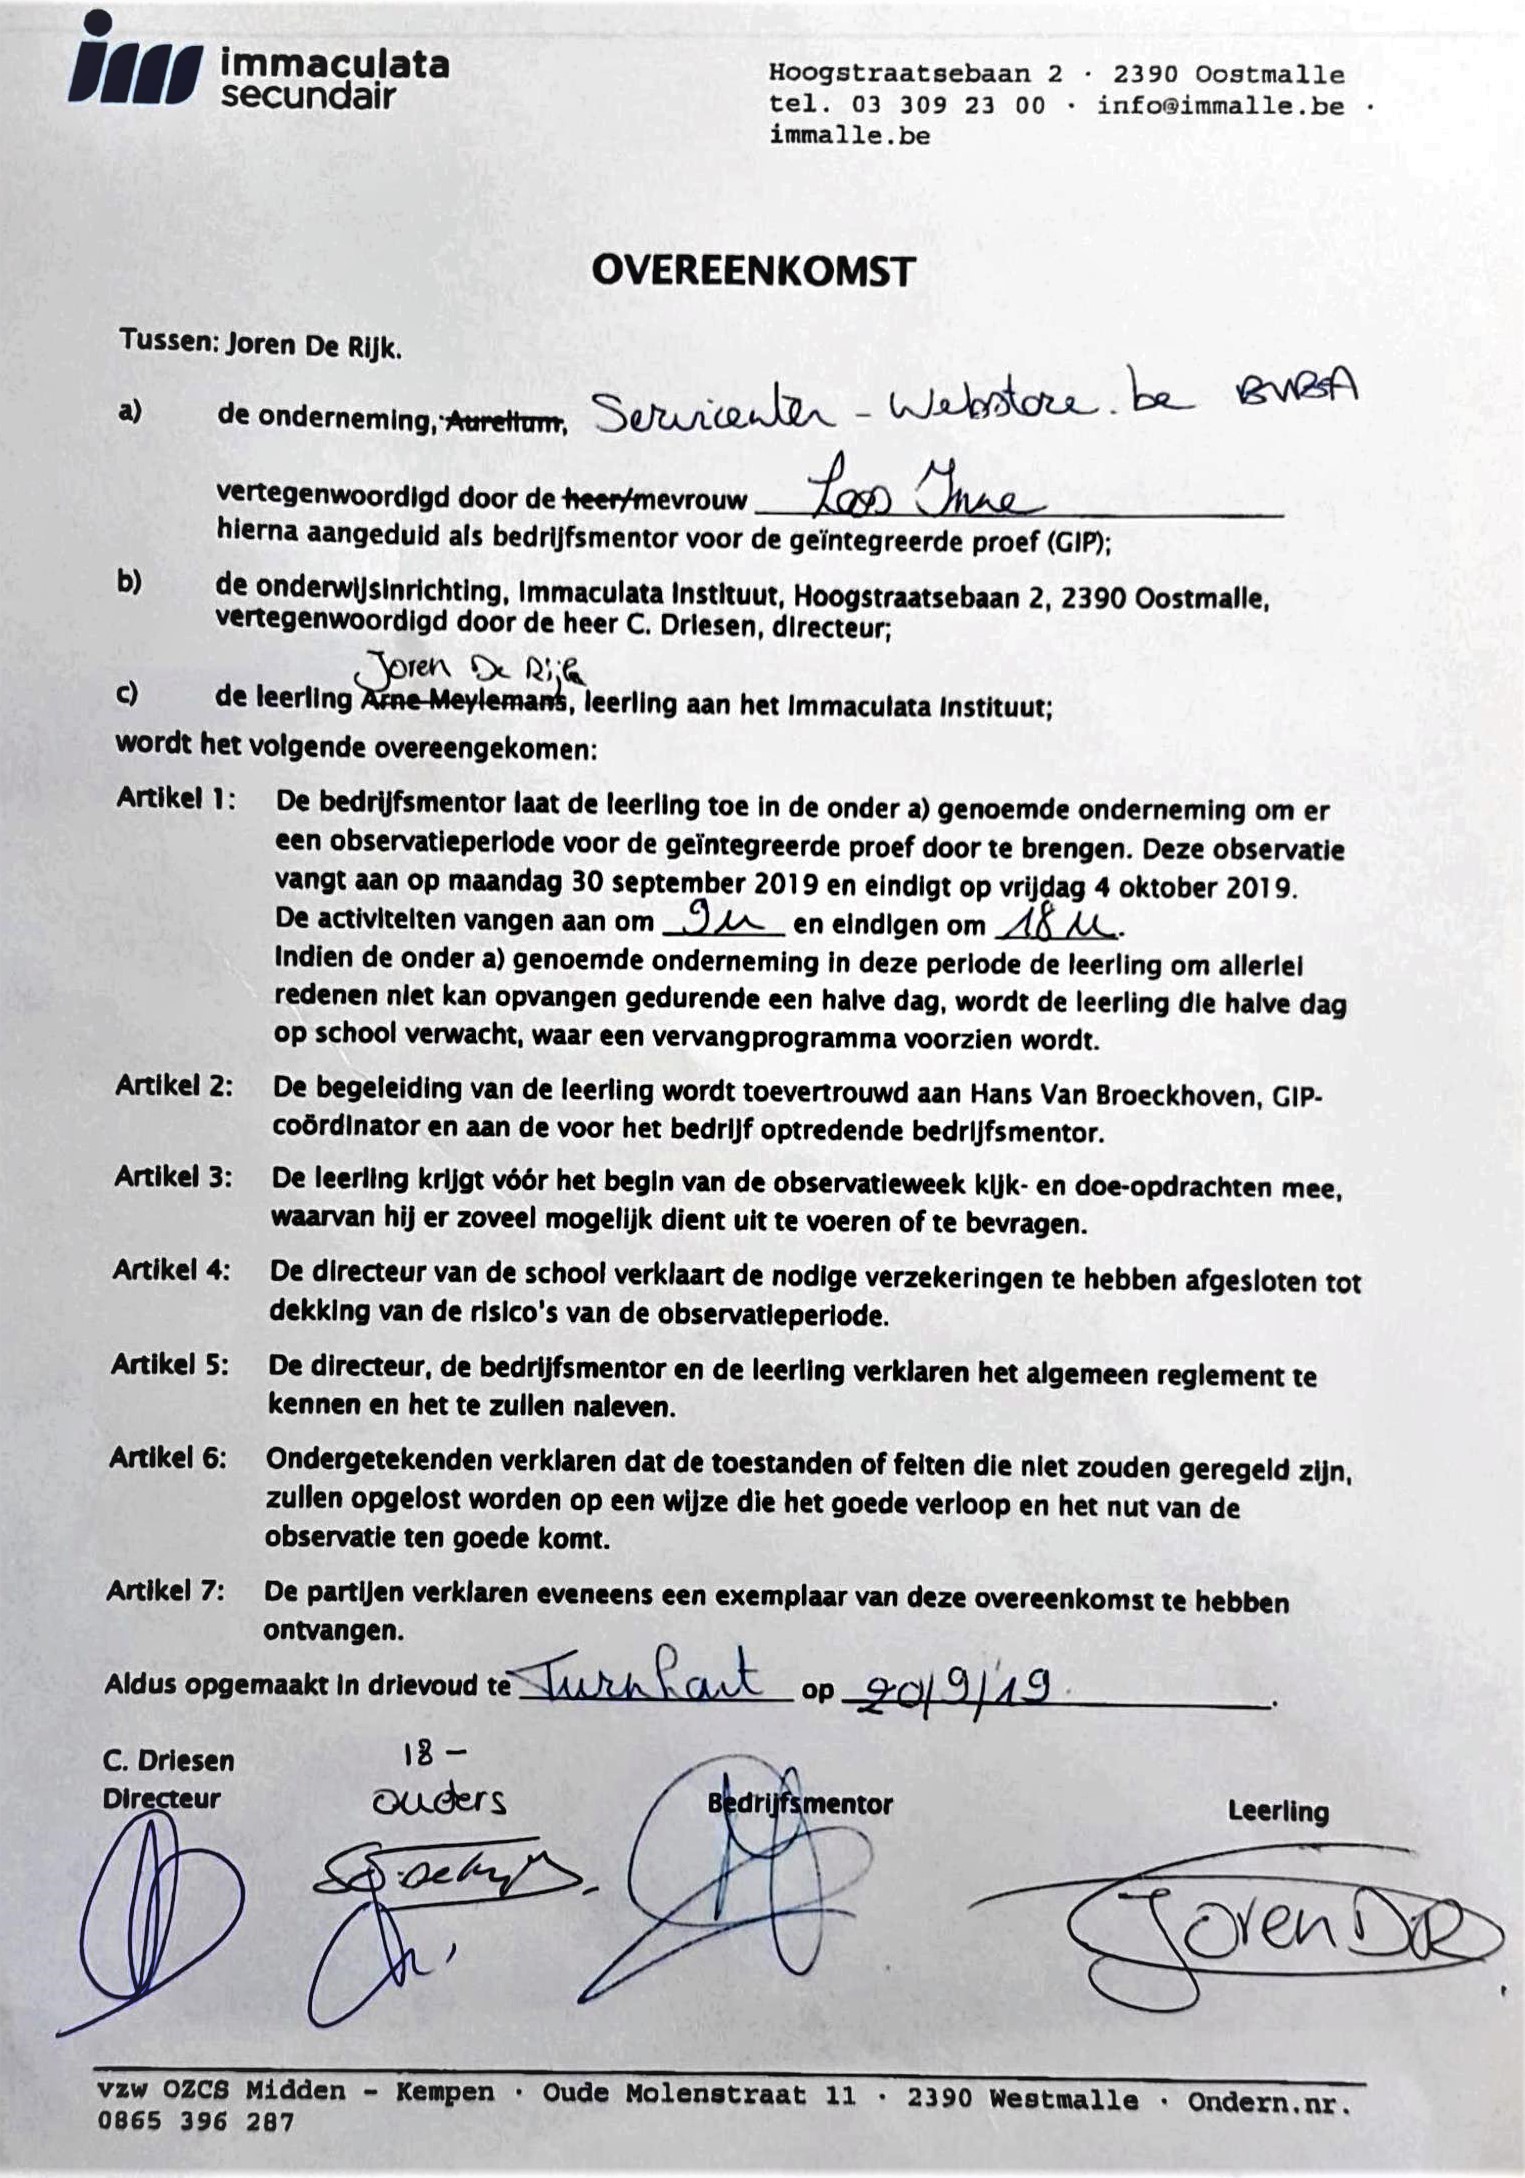 immaculata
secundair
Hoogstraatsebaan 2 · 2390 Oostmalle
tel. 03 309 23 00 · info@immalle.be ·
immalle.be
OVEREENKOMST
Tussen: Joren De Rijk.
a) de onderneming, Aurelium, Servicenter - Webstore.be BVBA
vertegenwoordigd door de heer/mevrouw Loos Inne
hierna aangeduid als bedrijfsmentor voor de geïntegreerde proef (GIP);
b) de onderwijsinrichting, Immaculata Instituut, Hoogstraatsebaan 2, 2390 Oostmalle,
vertegenwoordigd door de heer C. Driesen, directeur;
Joren De Rijk
c) de leerling Arne Meylemans, leerling aan het Immaculata Instituut;
wordt het volgende overeengekomen:
Artikel 1: De bedrijfsmentor laat de leerling toe in de onder a) genoemde onderneming om er
een observatieperiode voor de geïntegreerde proef door te brengen. Deze observatie
vangt aan op maandag 30 september 2019 en eindigt op vrijdag 4 oktober 2019.
De activiteiten vangen aan om 9u en eindigen om 18u.
Indien de onder a) genoemde onderneming in deze periode de leerling om allerlei
redenen niet kan opvangen gedurende een halve dag, wordt de leerling die halve dag
op school verwacht, waar een vervangprogramma voorzien wordt.
Artikel 2: De begeleiding van de leerling wordt toevertrouwd aan Hans Van Broeckhoven, GIP-
coördinator en aan de voor het bedrijf optredende bedrijfsmentor.
Artikel 3: De leerling krijgt vóór het begin van de observatieweek kijk- en doe-opdrachten mee,
waarvan hij er zoveel mogelijk dient uit te voeren of te bevragen.
Artikel 4: De directeur van de school verklaart de nodige verzekeringen te hebben afgesloten tot
dekking van de risico's van de observatieperiode.
Artikel 5: De directeur, de bedrijfsmentor en de leerling verklaren het algemeen reglement te
kennen en het te zullen naleven.
Artikel 6: Ondergetekenden verklaren dat de toestanden of feiten die niet zouden geregeld zijn,
zullen opgelost worden op een wijze die het goede verloop en het nut van de
observatie ten goede komt.
Artikel 7: De partijen verklaren eveneens een exemplaar van deze overeenkomst te hebben
ontvangen.
Aldus opgemaakt in drievoud te Turnhout op 20/9/19.
C. Driesen 18 -
Directeur ouders Bedrijfsmentor Leerling
Joren DR
vzw OZCS Midden - Kempen · Oude Molenstraat 11 · 2390 Westmalle · Ondern.nr.
0865 396 287